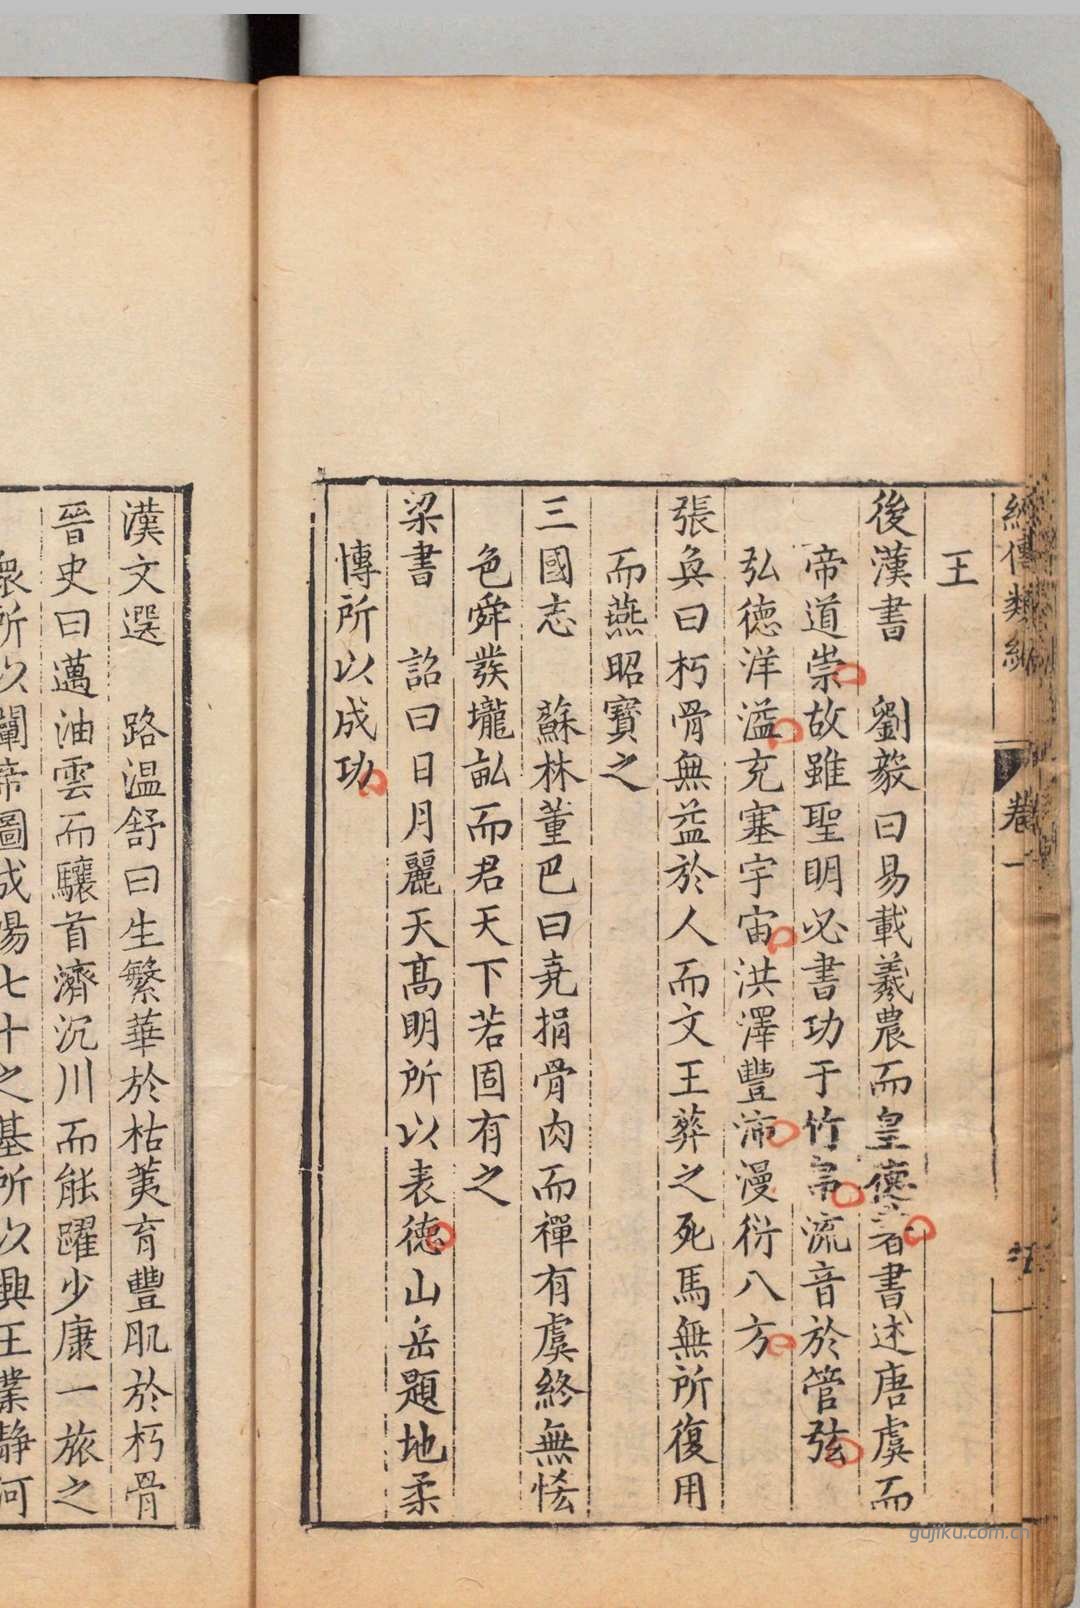 經傳類
卷一
王
後漢書　劉毅曰易載羲農而皇德著書述唐虞而
帝道崇故雖聖明必書功于竹帛流音於管弦
弘德洋溢充塞宇宙洪澤豐沛漫衍八方
張奐曰朽骨無益於人而文王葬之死馬無所復用
而燕昭寶之
三國志　蘇林董巴曰堯捐骨肉而禪有虞終無恡
色舜發壠畝而君天下若固有之
梁書　詔曰日月麗天高明所以表德山岳題地柔
愽所以成功
漢文選　路溫舒曰生繁華於枯荑育豐肌於朽骨
晉史曰邁油雲而驤首濟沉川而能躍少康一旅之
衆所以闡帝圖成湯七十之基所以興王業靜河
gujiku.com.cn